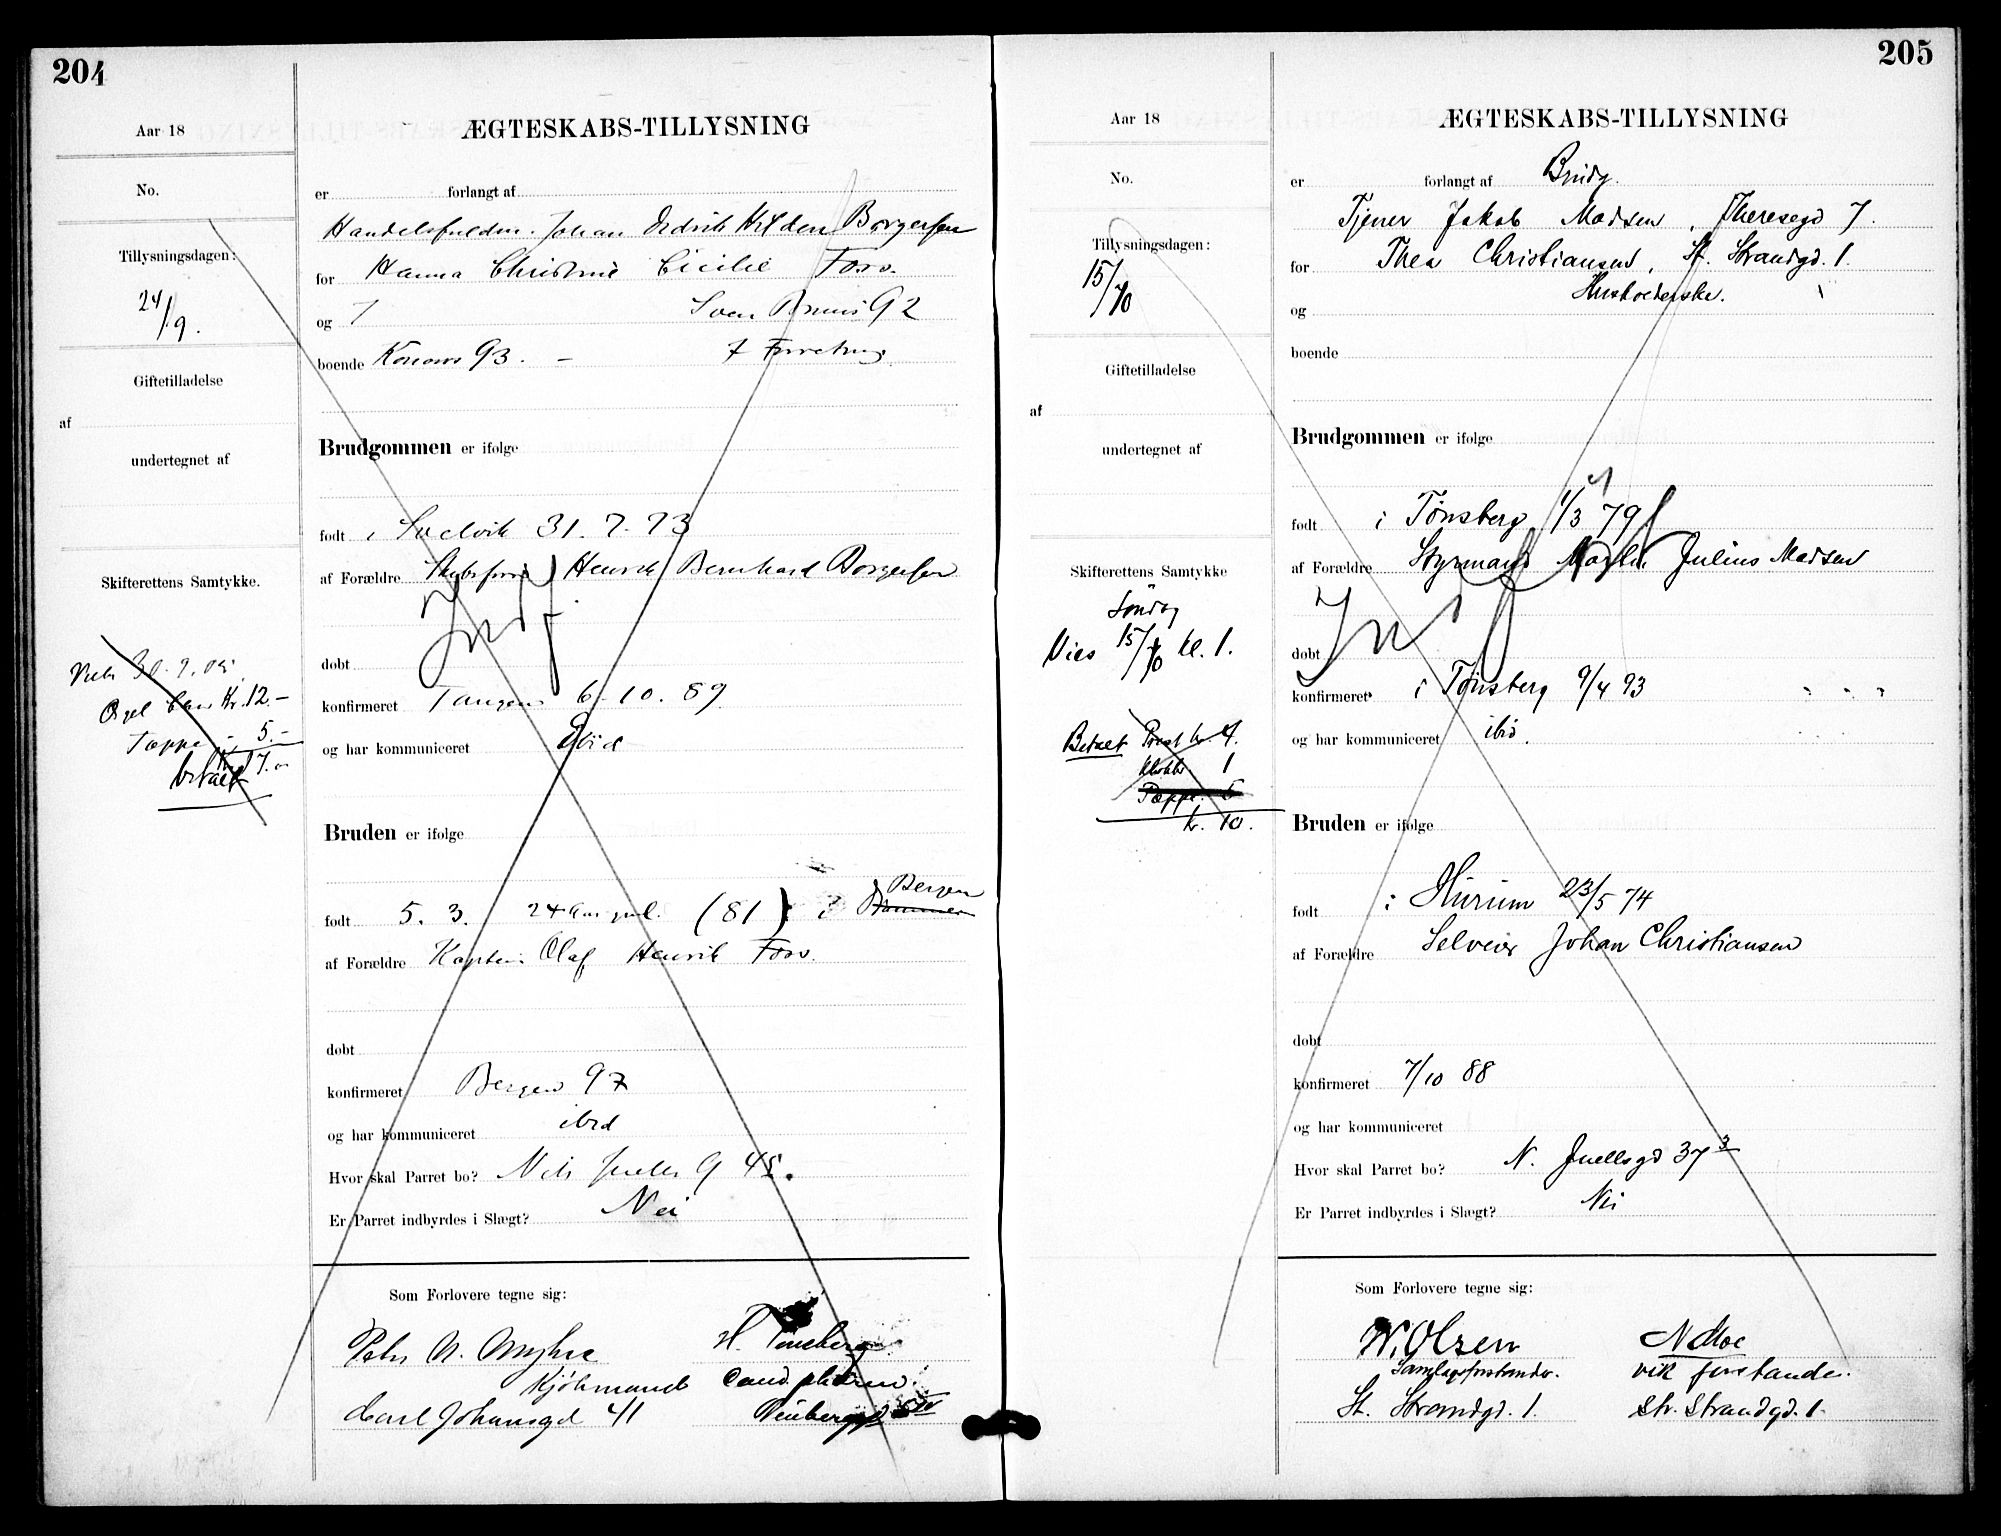 204
Aar 18
ÆGTESKABS-TILLYSNING
No.
er forlangt af
Handelsfuldm. Johan Hilden Borgersen
Tillysningsdagen:
24/9.
for Hanna Christine Cicilie Foss.
og
boende Konows G 3. -
Giftetilladelse
af
undertegnet af
Brudgommen er ifølge
født i Svelvik 31. 7. 73
af Forældre Henrik Bernhard Borgersen
Skifterettens Samtykke.
Indf
døbt
konfirmeret Tangen 6. 10. 89
og har kommuniceret ibid
Vies 30. 9. 05.
Orgel Kr. 12.-
Teppe 5.-
17.-
betalt
Bruden er ifølge
Bergen
født 5. 3. 24 Aar gml. (81) i
af Forældre Kaptein Olaf Henrik Foss.
døbt
konfirmeret Bergen 97
og har kommuniceret ibid
Hvor skal Parret bo? Nils Juels G 45.
Er Parret indbyrdes i Slægt? Nei
Som Forlovere tegne sig:
Peter N. Myhre H. Tønsberg
Kjøbmand Cand. pharm.
Carl Johansgd 41
205
Aar 18
ÆGTESKABS-TILLYSNING
No.
er forlangt af Brudg.
Tjener Jakob Madsen, Theresegd 7.
Tillysningsdagen:
15/10
for Thea Christiansen, St. Strandgd. 1.
Husholderske.
og
boende
Giftetilladelse
af
undertegnet af
Brudgommen er ifølge
født i Tønsberg 1/3 79
af Forældre Styrmand Julius Madsen
Skifterettens Samtykke
Søndag
Vies 15/10 kl. 1.
Indf
døbt
konfirmeret i Tønsberg 9/4 93
og har kommuniceret ibid.
Betalt Prest kr. 4.
Klokker 1
Teppe. 5
kr. 10.
Bruden er ifølge
født i Hurum 23/5 74
af Forældre Selveier Johan Christiansen
døbt
konfirmeret 7/10 88
og har kommuniceret
Hvor skal Parret bo? N. Juellsgd 37 3
Er Parret indbyrdes i Slægt? Nei
Som Forlovere tegne sig:
W. Olsen N Moe
Samlagsforstander. vik forstander.
St. Strandgd. 1. Str. Strandgd. 1.